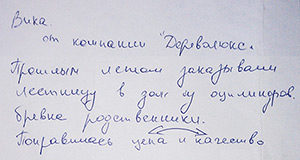 Вика.
от компании "Дереволюкс.
Прошлым летом заказывали
лестницу в дом из оцилиндров.
бревна родственники.
Понравилась цена и качество